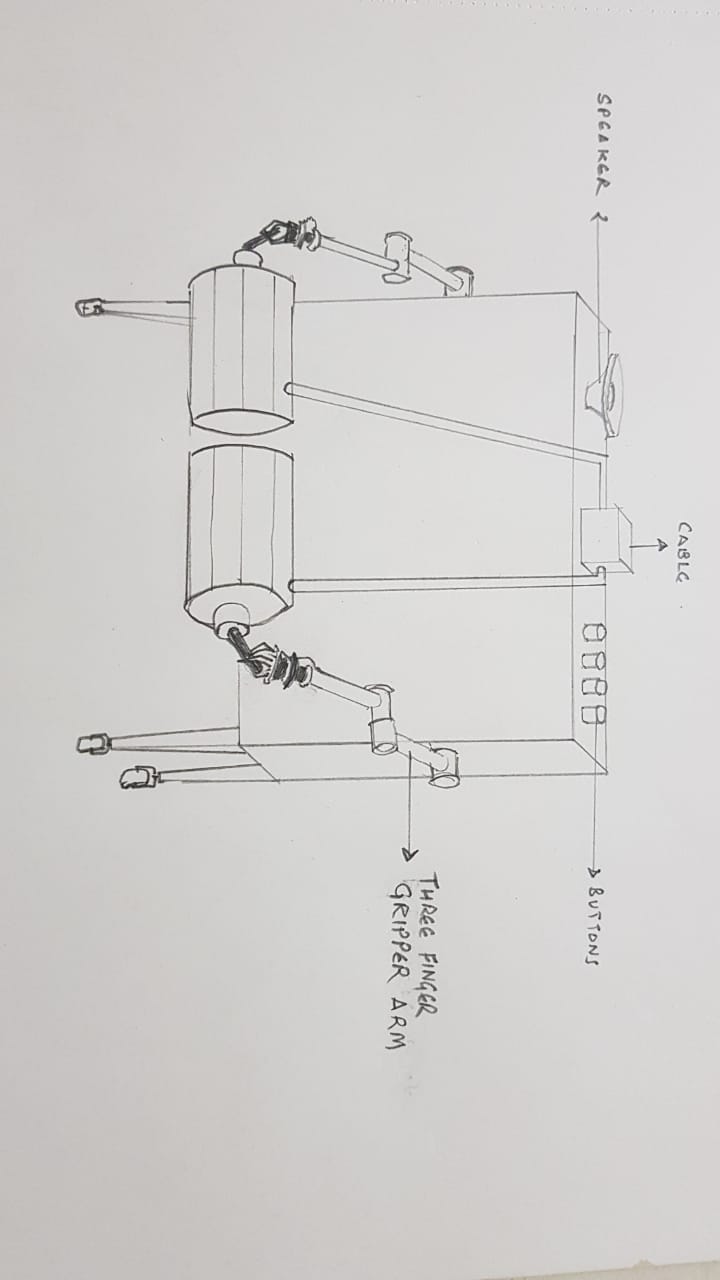 CABLE
SPEAKER
BUTTONS
THREE FINGER
GRIPPER ARM